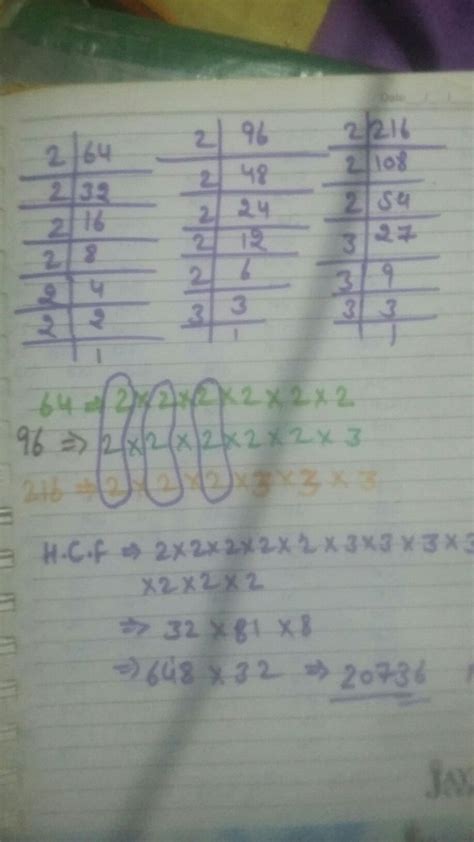 Date / /
2 | 64
2 | 32
2 | 16
2 | 8
2 | 4
2 | 2
1
2 | 96
2 | 48
2 | 24
2 | 12
2 | 6
3 | 3
1
2 | 216
2 | 108
2 | 54
3 | 27
3 | 9
3 | 3
1
64 ⇒ 2×2×2×2×2×2
96 ⇒ 2×2×2×2×2×3
216 ⇒ 2×2×2×3×3×3
H.C.F ⇒ 2×2×2×2×2×3×3×3×3
×2×2×2
⇒ 32×81×8
⇒ 648×32 ⇒ 20736